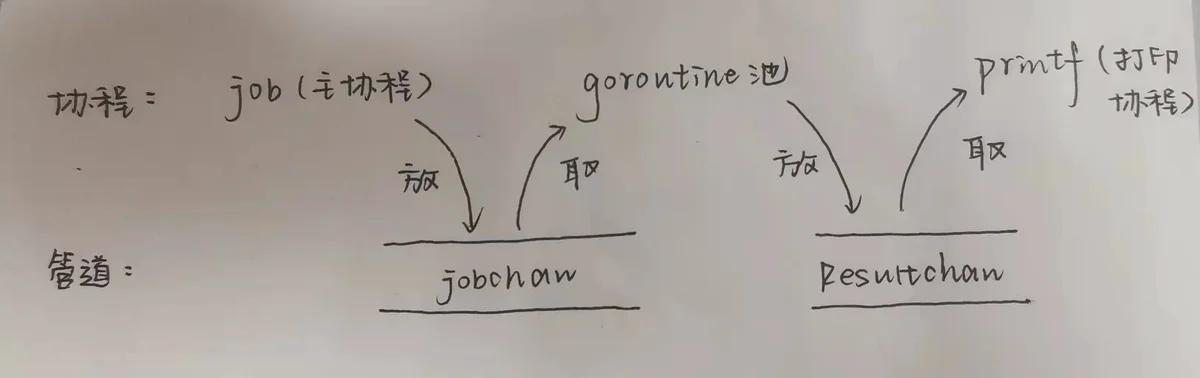 协程： job（主协程） goroutine 池 printf（打印
协程）
放 取 放 取
管道： jobchan Resultchan